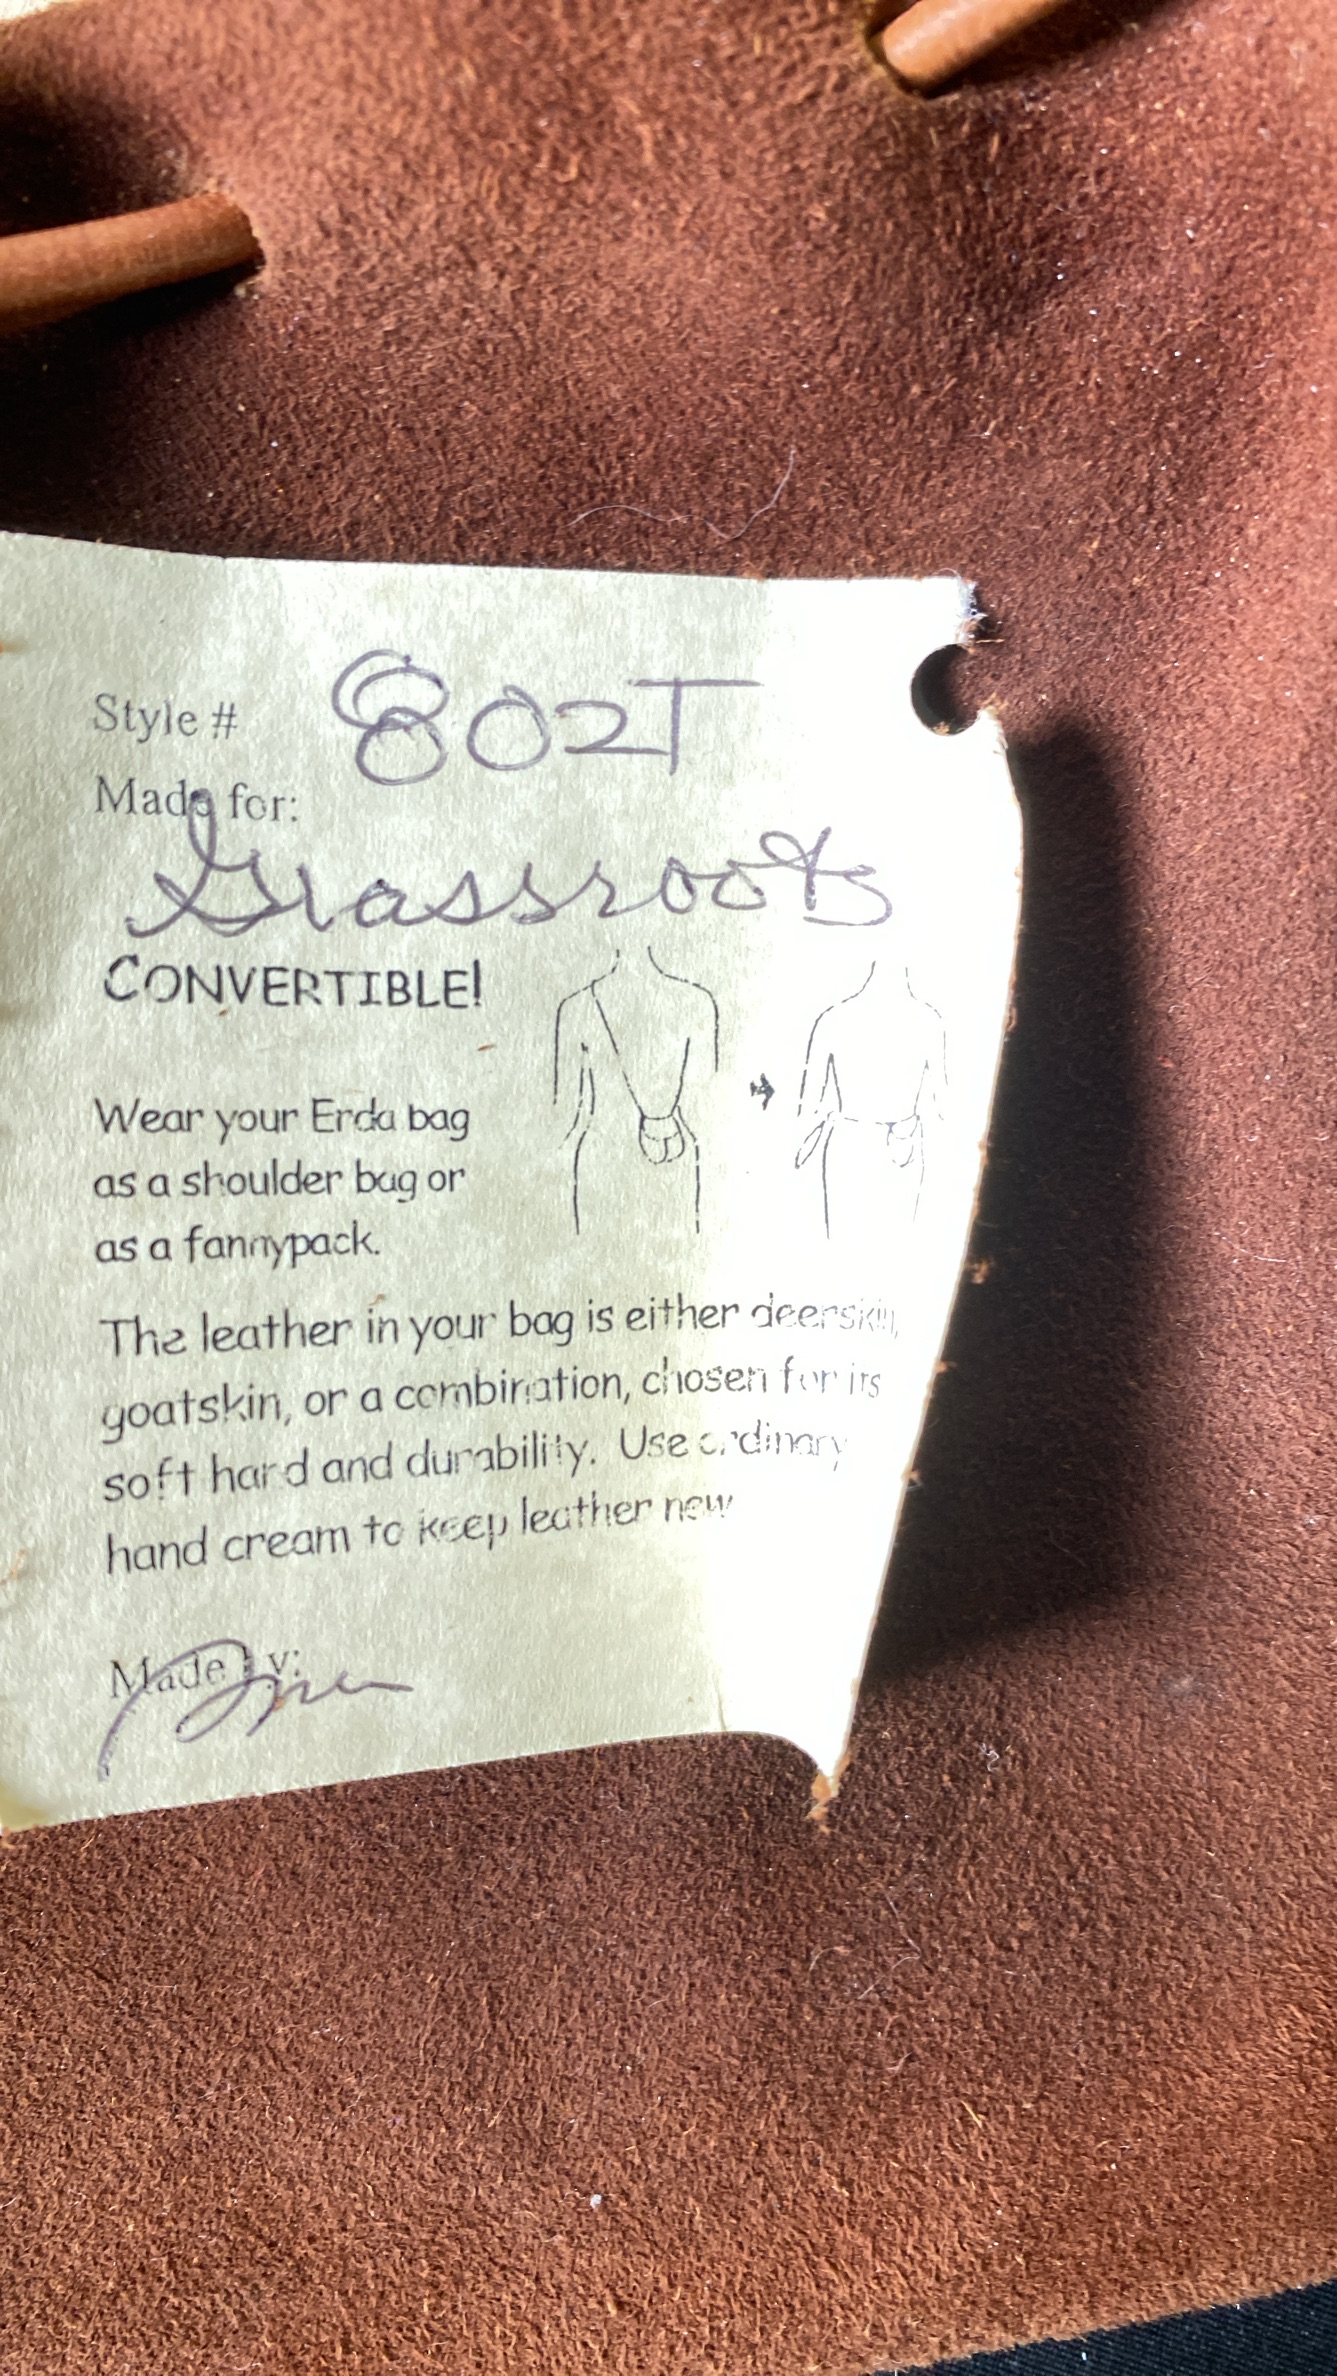 Style # 802T
Made for:
Grassroots
CONVERTIBLE!
Wear your Erda bag
as a shoulder bag or
as a fannypack.
The leather in your bag is either deerskin,
goatskin, or a combination, chosen for its
soft hand and durability. Use ordinary
hand cream to keep leather new
Made by: